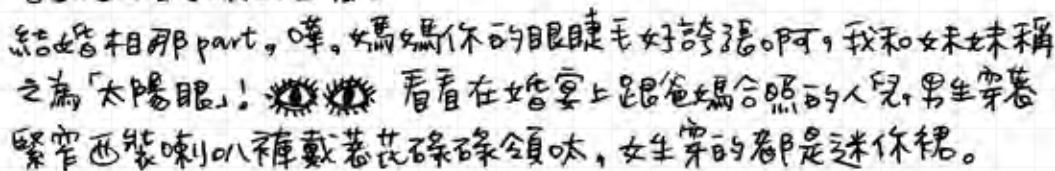 結婚相那part，嘩。媽媽你的眼睫毛好誇張啊，我和妹妹稱
之為「太陽眼」！看看在婚宴上跟爸媽合照的人兒，男生穿著
緊窄西裝喇叭褲戴著花碌碌領呔，女生穿的都是迷你裙。